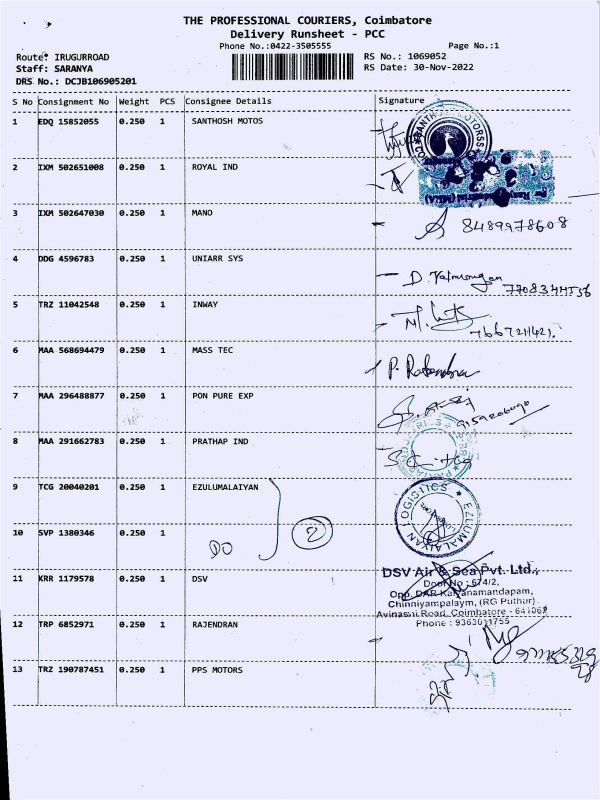 THE PROFESSIONAL COURIERS, Coimbatore
Delivery Runsheet - PCC
Phone No.:0422-3505555 Page No.:1
Route: IRUGURROAD RS No.: 1069052
Staff: SARANYA RS Date: 30-Nov-2022
DRS No.: DCJB106905201
S No Consignment No Weight PCS Consignee Details Signature
1 EDQ 15852055 0.250 1 SANTHOSH MOTOS
2 IXM 502651008 0.250 1 ROYAL IND
3 IXM 502647030 0.250 1 MANO
8489978608
4 DDG 4596783 0.250 1 UNIARR SYS
5 TRZ 11042548 0.250 1 INWAY
6 MAA 568694479 0.250 1 MASS TEC
7 MAA 296488877 0.250 1 PON PURE EXP
8 MAA 291662783 0.250 1 PRATHAP IND
9 TCG 20040201 0.250 1 EZULUMALAIYAN
EZLUMALAIYAN LOGISTICS
10 SVP 1380346 0.250 1
DO 2
11 KRR 1179578 0.250 1 DSV
DSV Air & Sea Pvt. Ltd.,
Door No : 674/2,
Opp. DAR Kalyanamandapam,
Chinniyampalaym, (RG Puthur)
Avinashi Road, Coimbatore - 641062
Phone : 9363011755
12 TRP 6852971 0.250 1 RAJENDRAN
13 TRZ 190787451 0.250 1 PPS MOTORS